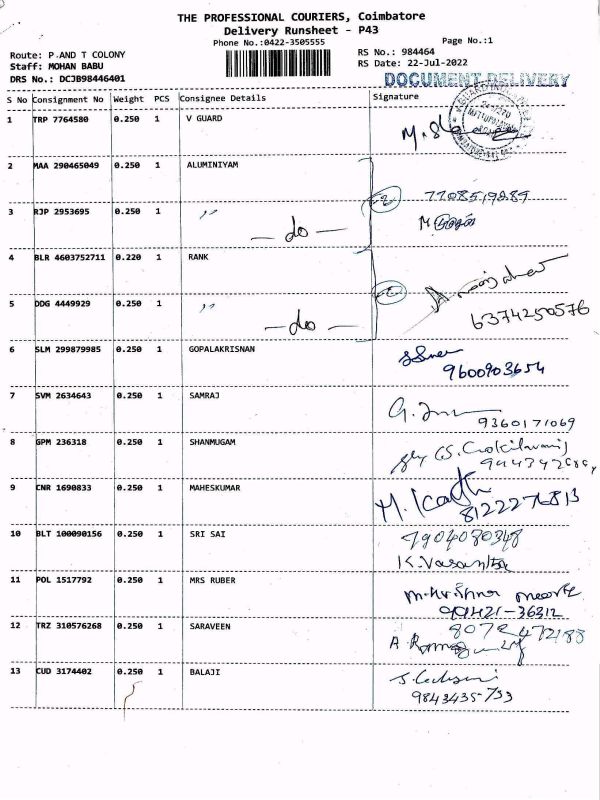 THE PROFESSIONAL COURIERS, Coimbatore
Delivery Runsheet - P43
Phone No.:0422-3505555
Page No.:1
Route: P AND T COLONY
RS No.: 984464
Staff: MOHAN BABU
RS Date: 22-Jul-2022
DRS No.: DCJB98446401
DOCUMENT DELIVERY
S No Consignment No Weight PCS Consignee Details Signature
1 TRP 7764580 0.250 1 V GUARD
2 MAA 290465049 0.250 1 ALUMINIYAM
7708519289
3 RJP 2953695 0.250 1 ,, — do —
4 BLR 4603752711 0.220 1 RANK
5 DDG 4449929 0.250 1 ,, — do — 6374250576
6 SLM 299879985 0.250 1 GOPALAKRISNAN
9600903654
7 SVM 2634643 0.250 1 SAMRAJ
9360171069
8 GPM 236318 0.250 1 SHANMUGAM
9 CNR 1690833 0.250 1 MAHESKUMAR
8122276813
10 BLT 100090156 0.250 1 SRI SAI 7904030348
K. Vasantha
11 POL 1517792 0.250 1 MRS RUBER
99421-36312
12 TRZ 310576268 0.250 1 SARAVEEN 8072472188
13 CUD 3174402 0.250 1 BALAJI
9843435733